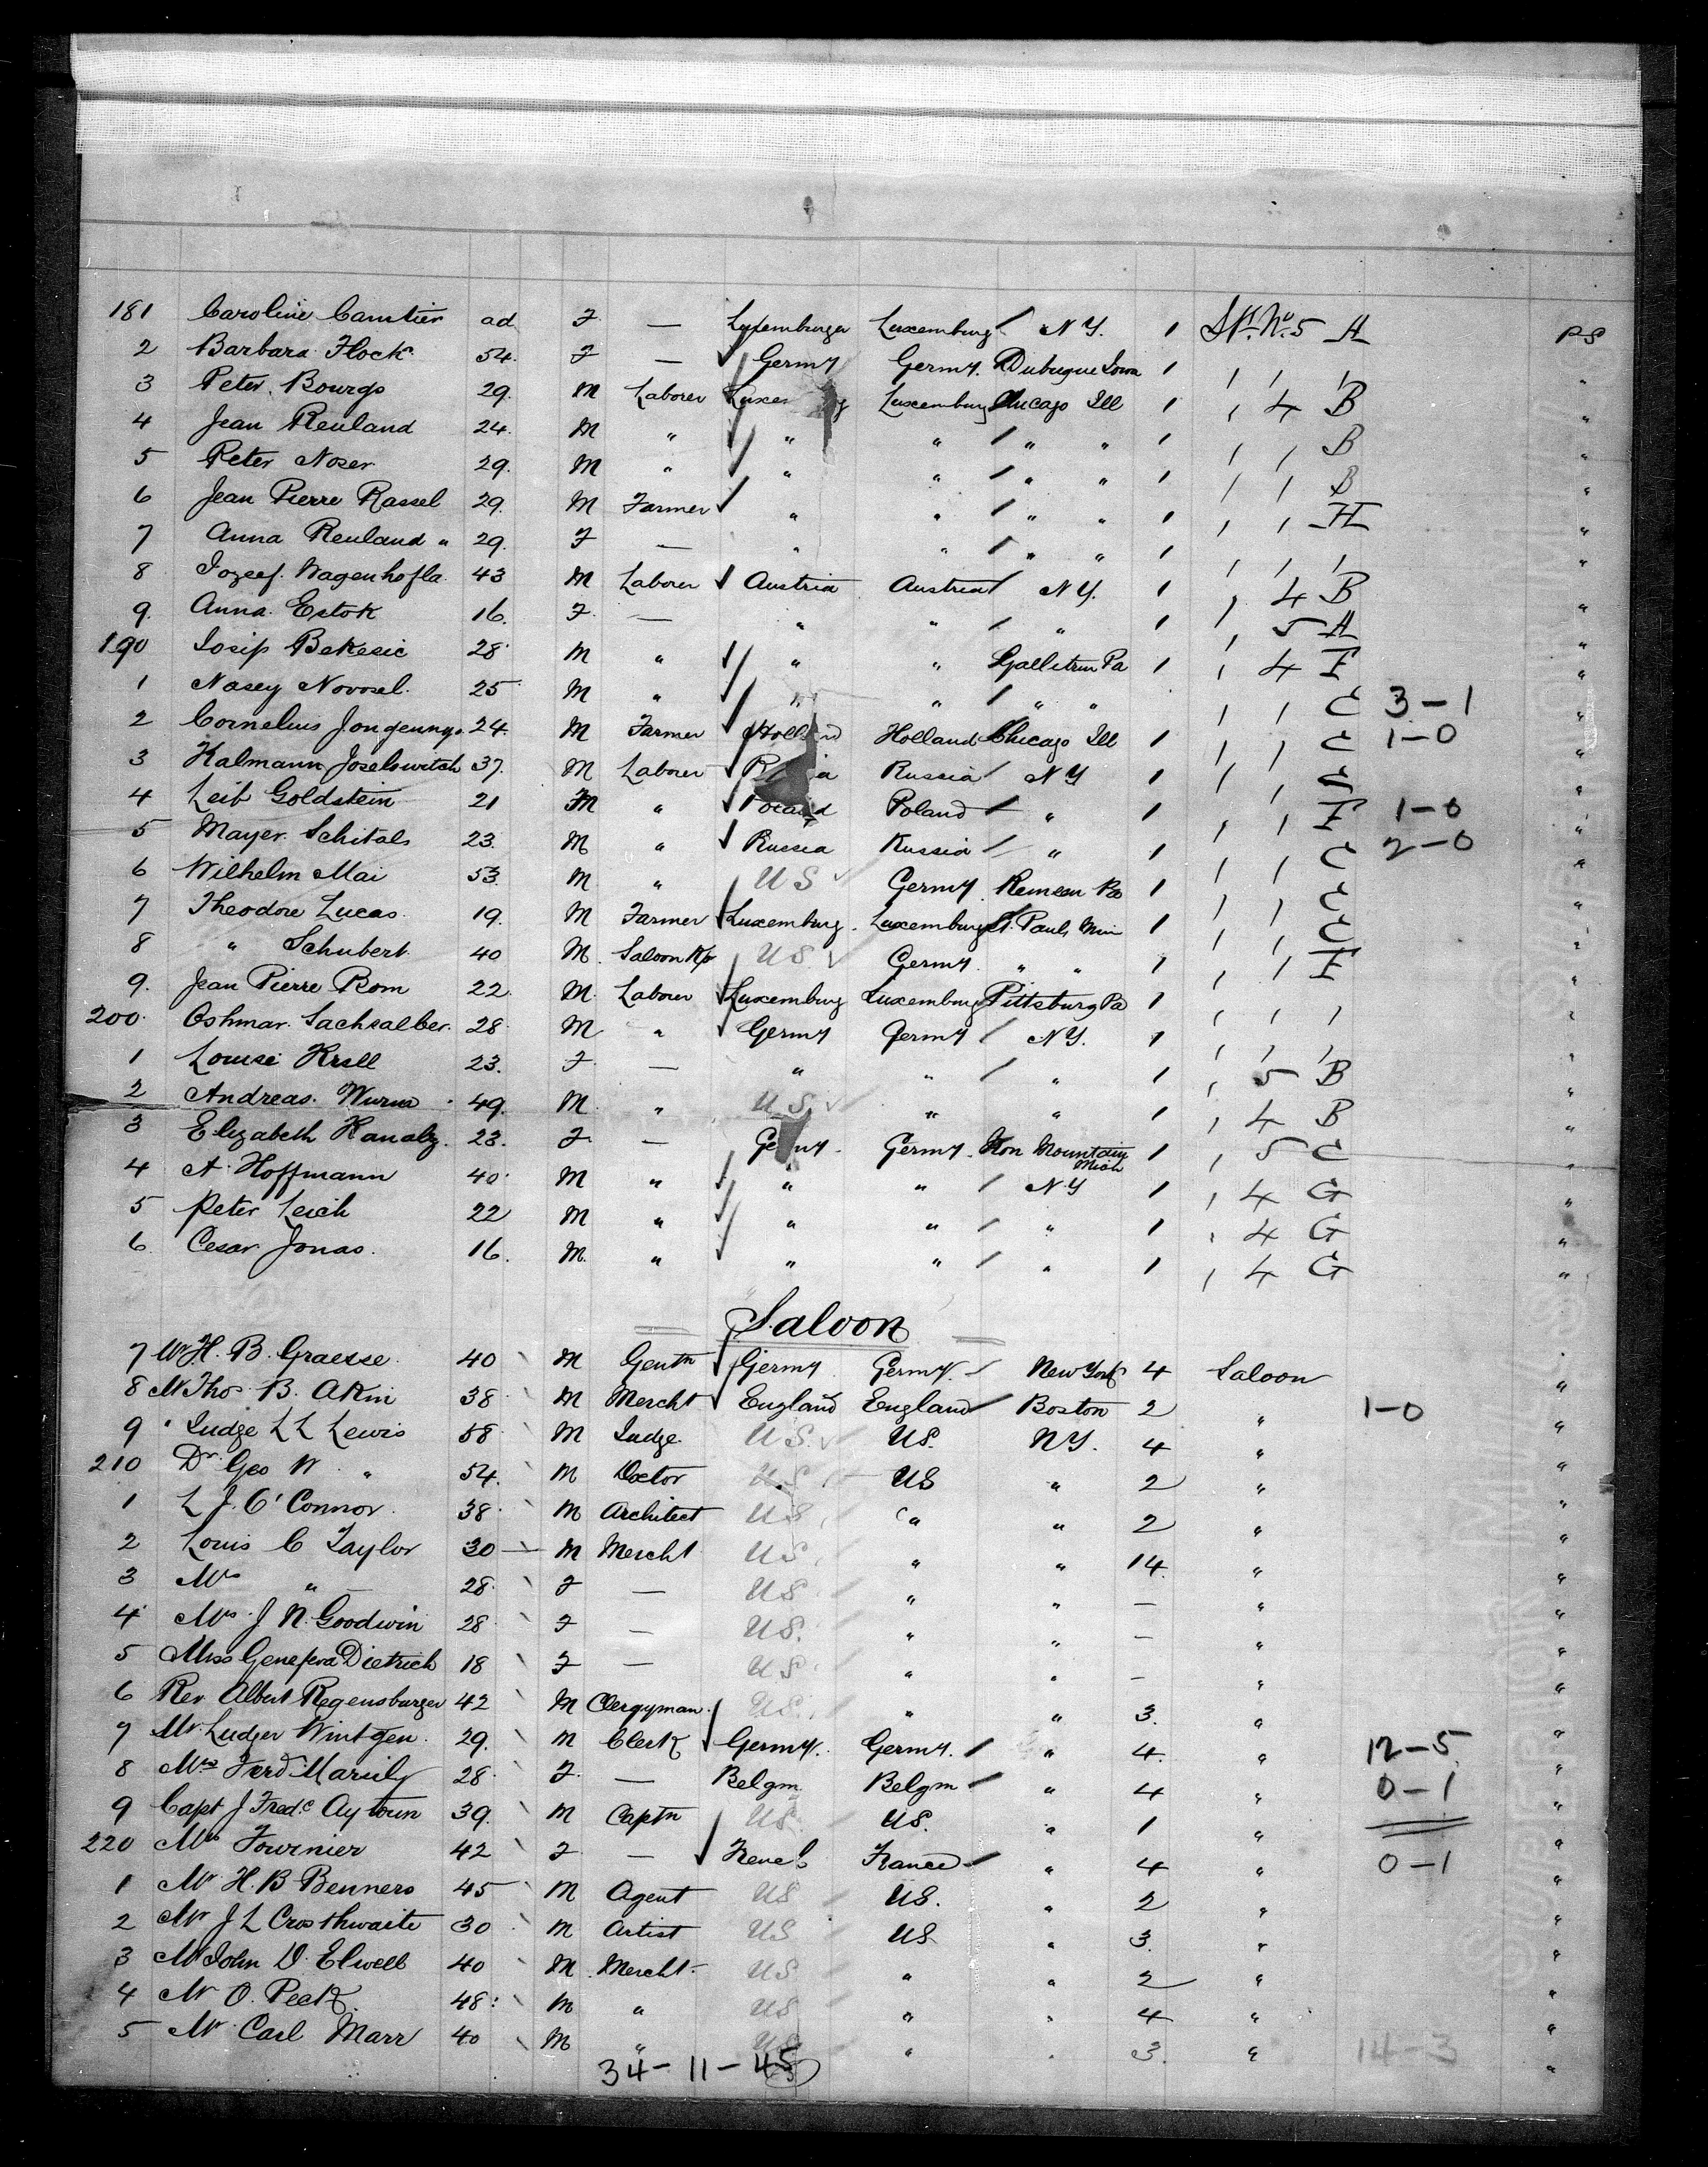 181 Caroline Camtier ad F — Luxemburger Luxemburg / N Y. 1 St. No. 5 A PS
2 Barbara Flock 54. F — Germy Germy. Dubuque Iowa 1 " " " "
3 Peter Bourgo 29. M Laborer Luxemburg Chicago Ill 1 " 4 B "
4 Jean Reuland 24. M " " " / " " 1 " " B "
5 Peter Noser 29. M " " " / " " 1 " " B "
6 Jean Pierre Rassel 29. M Farmer " " / " " 1 " " H "
7 Anna Reuland " 29. F — " " / " " 1 " " " "
8 Jozeef. Wagenhofla 43 M Laborer Austria Austria / N Y. 1 " 4 B "
9. Anna Estok 16. F — " " / " 1 " 5 A "
190 Josip Bekesic 28 M " " " Gallitzin Pa 1 " 4 F "
1 Nasey Novosel. 25 M " " " / " " " " E 3–1 "
2 Cornelius 24. M Farmer Holland Holland Chicago Ill 1 " " E 1–0 "
3 Kalmann Joselowitch 37. M Laborer Russia Russia / N Y 1 " " E "
4 Leib Goldstein 21 M " Poland Poland / " 1 " " F 1–0 "
5 Mayer Schitals 23. M " Russia Russia / " 1 " " E 2–0 "
6 Wilhelm Mai 53. M " U S Germy. 1 " " E "
7 Theodore Lucas 19. M Farmer Luxemburg. Luxemburg St. Paul, Min 1 " " E "
8 " Schubert 40 M. Saloon Kpr U S Germy. " " 1 " " F "
9. Jean Pierre Rom 22. M. Laborer Luxemburg Luxemburg Pittsburg Pa 1 " " " "
200. Oshmar. Sachsalber. 28 M " Germy Germy / N Y. 1 " " " "
1 Louise Krell 23. F — " " / " 1 " 5 B "
2 Andreas. Wurm 49. M. " U S " " 1 " 4 B "
3 Elizabeth Kanaly. 23. F — Germy. Germy. Iron Mountain Mich 1 " 5 E "
4 A. Hoffmann 40 M " " " / N Y 1 " 4 G "
5 Peter Leich 22 M " " " / " 1 " 4 G "
6. Cesar Jonas. 16. M. " " " / " 1 " 4 G "
Saloon
7 Mr H. B. Graesse. 40 M Gentn Germy Germy. / New York 4 Saloon "
8 Mr Thos B. Akin 38 M Mercht England England / Boston 2 " 1–0 "
9 Judge L L Lewis 58 M Judge. U S. US. N Y. 4 " "
210 Dr Geo W " 54. M Doctor U S US " 2 " "
1 L J. O'Connor 38 M Architect U S " " 2 " "
2 Louis C Taylor 30 M Mercht U S " " 14. " "
3 Mrs " 28 F — U S " " — " "
4 Mrs J N. Goodwin 28 F — U S. " " — " "
5 Miss Genefera Dietrich 18 F — U S " " — " "
6 Rev Albert Regensburger 42 M Clergyman. U S. " " 3. " "
7 Mr. Ludger Wintgen. 29. M Clerk Germy. Germy. / " 4. " 12–5 "
8 Mrs Ferd Marsily 28 F. — Belgm. Belgm / " 4 " 0–1 "
9 Capt J Fredc Aytoun 39. M Captn U S. US. " 1 " "
220 Mrs Fournier 42 F — French France / " 4 " 0–1 "
1 Mr H. B Benners 45 M Agent U S US. " 2 " "
2 Mr J L Crosthwaite 30 M Artist U S US " 3. " "
3 Mr John D. Elwell 40 M. Mercht. U S " " 2 " "
4 Mr O. Peck. 48 M " U S " " 4 " "
5 Mr Carl Marr 40 M " U S " " 3. " 14–3 "
34–11–45